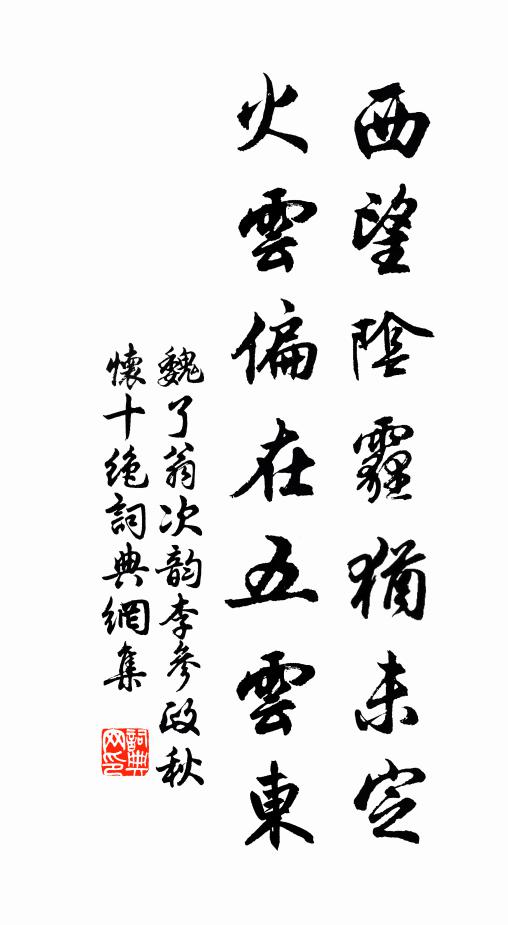 西望陰霾猶未定
火雲偏在五雲東
魏了翁次韵李參政秋
懷十绝詞典網集
詞典网印